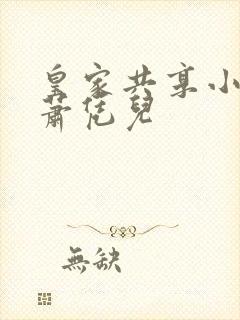 皇家共享小
蕭恁兒
無缺